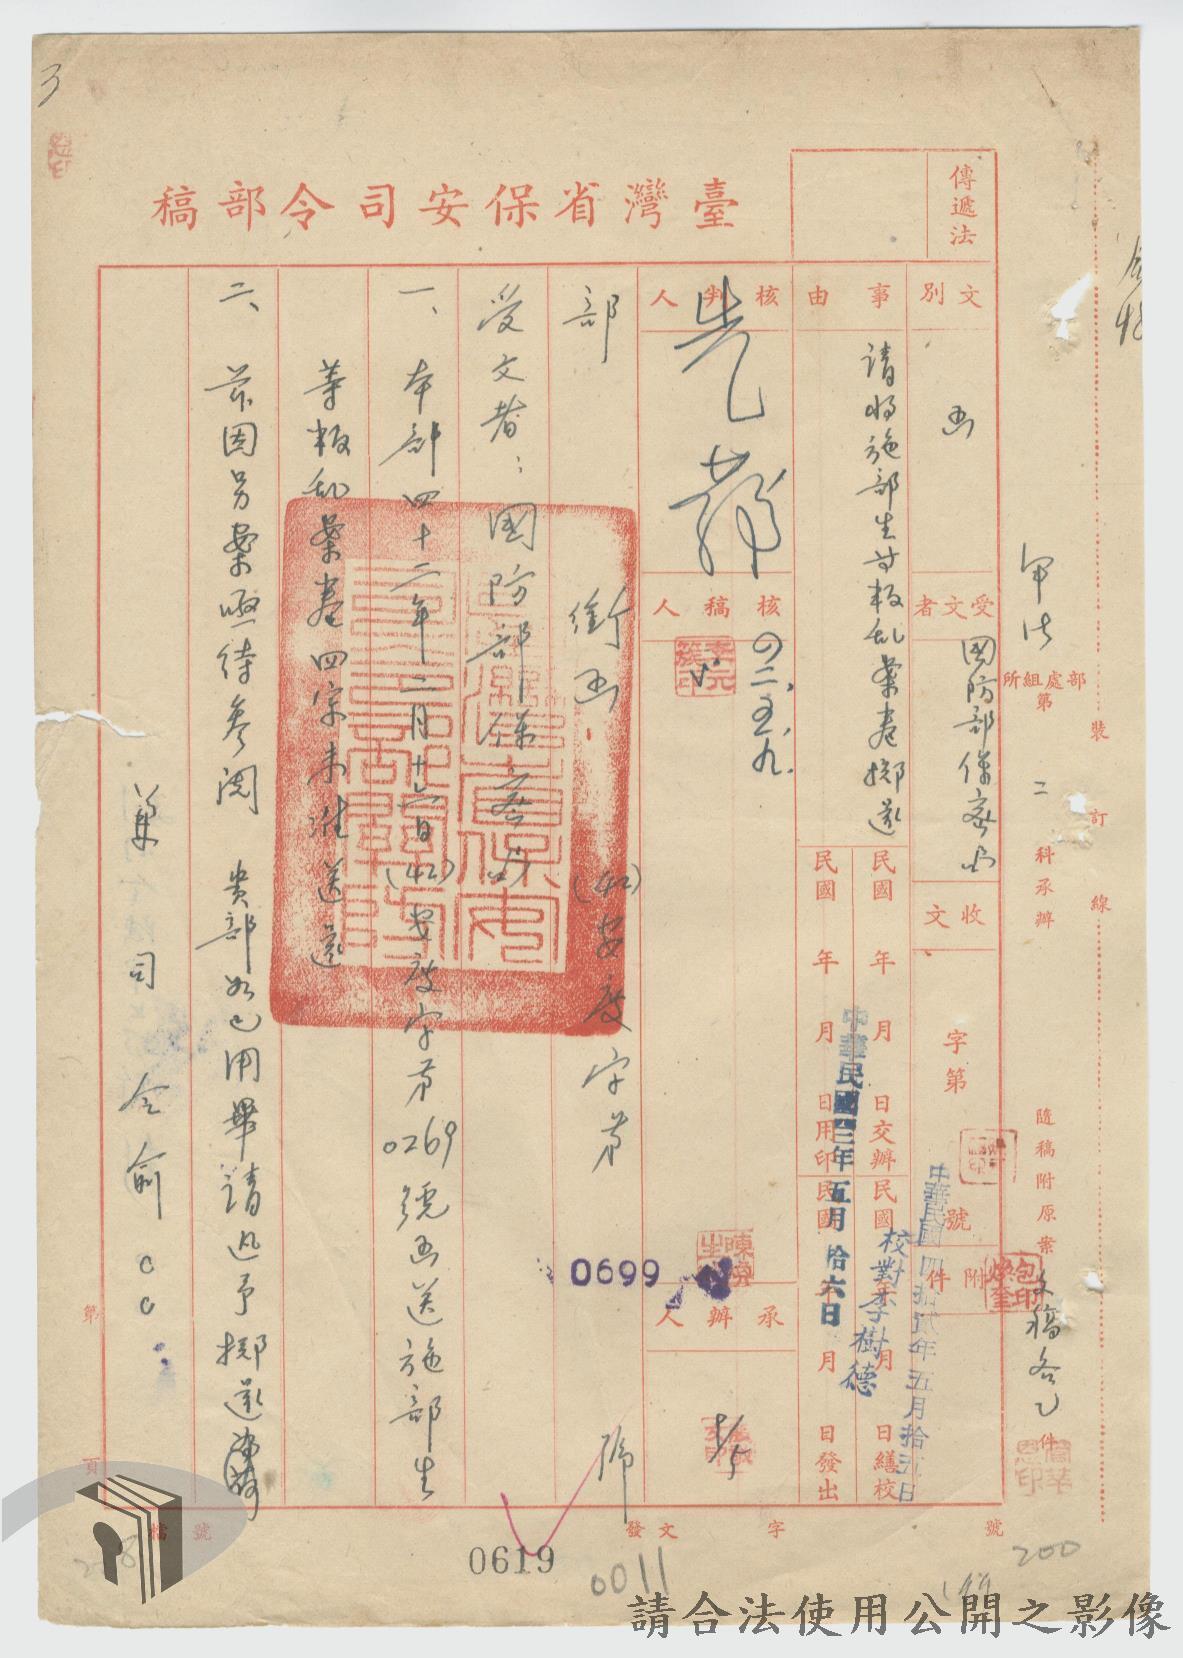 3
臺灣省保安司令部稿
傳遞法
文別
函
受文者
國防部保密局
收文
字第
號
附件
事由
請將施部生等叛乱案卷擲還
民國 年 月 日交辦
民國 年 月 日繕校
民國 年 月 日用印
民國 年 月 日發出
中華民國四十二年五月拾六日
中華民國四拾貳年五月拾五日
校對李樹德
核判人
核稿人
四二、五、九、
承辦人
部
銜函
(42)安度字第
0699
號
受文者：國防部保密局
一、本部四十二年二月十六日(42)安度字第0269號函送施部生
等叛乱案卷四宗未准送還
二、茲因另案亟待參閱 貴部如已用畢請迅予擲還為荷
兼司令俞○○
軍法
部處組所
第二科承辦
隨稿附原案
文稿各乙件
包煥奎印
裝
訂
線
第
頁
檔號
發文
字
號
0619
0011
200
請合法使用公開之影像